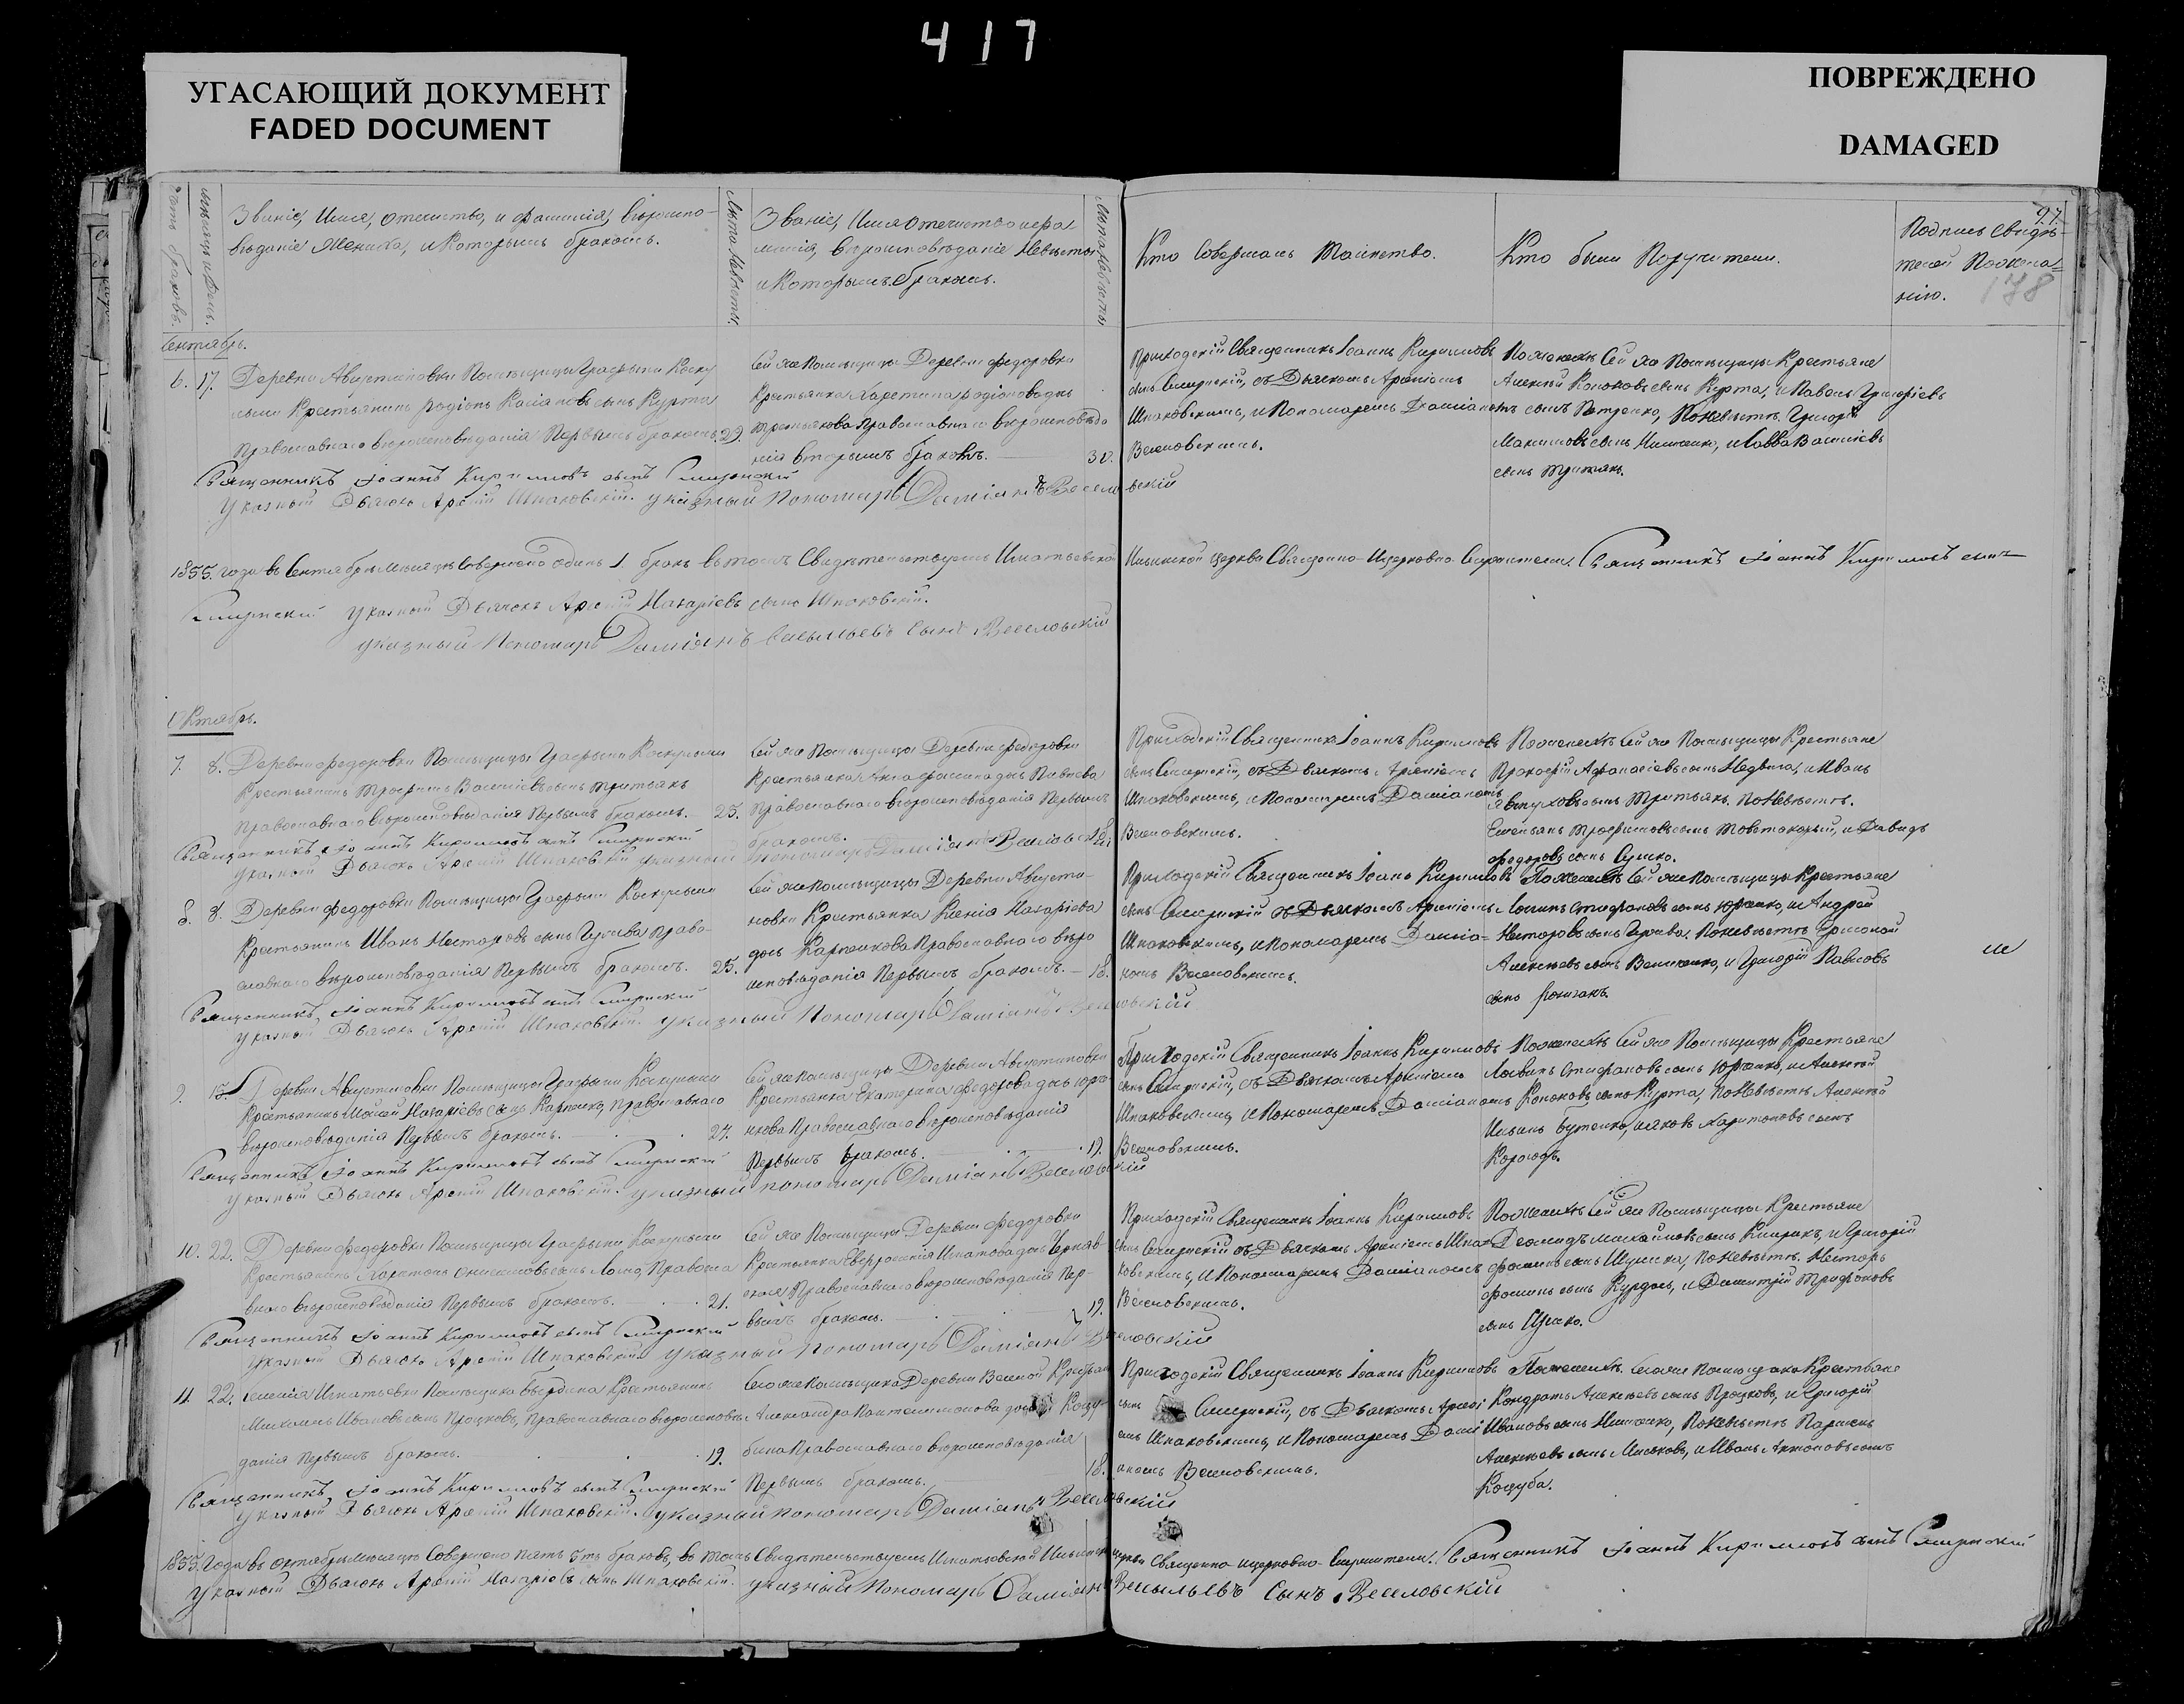 417
УГАСАЮЩИЙ ДОКУМЕНТ
FADED DOCUMENT
ПОВРЕЖДЕНО
DAMAGED
97
178
Званіе, Имя, отечество, и фамилія, вѣроиспо-
вѣданіе Жениха, и Которымъ бракомъ.
Званіе, Имя отечество и фа
милія, вѣроисповѣданіе Невѣсты
и Которымъ бракомъ.
Кто Совершалъ Таинство.
Кто были Поручители.
Подпись Свидѣ-
телей По жела-
нію.
Сентябрь.
6. 17. Деревни Августиновки Помѣщицы Графыни
Крестьянинъ Родіонъ Касіановъ сынъ Курта
Православнаго вѣроисповѣданія Первымъ бракомъ. 29.
Сей же Помѣщицы Деревни Федоровки
Крестьянка Харетина Родіонова дочь
Третьякова Православнаго вѣроисповѣда
нія вторымъ бракомъ. 30.
Приходскій Священникъ Іоаннъ Кириловъ
сынъ Смирнскій, съ Дьячкомъ Арсеніемъ
Шпаковскимъ, и Пономаремъ Даміаномъ
Веселовскимъ.
По женихѣ Сей же Помѣщицы Крестьяне
Алексій Кононовъ сынъ Курта, и Павелъ Григоріевъ
сынъ Петренко, По Невѣстѣ Григорій
Максимовъ сынъ Ищенко, и Савва Василіевъ
сынъ Третьякъ.
Священникъ Іоаннъ Кириловъ сынъ Смирнскій
Указный Дьячокъ Арсеній Шпаковскій. указный Пономарь Даміанъ Веселовскій
1855. года въ Сентябрѣ мѣсяцѣ Совершено Одинъ 1 бракъ въ томъ Свидѣтельствуемъ Игнатьевской Ильинской Церкви Священно-Церковно Служители. Священникъ Іоаннъ Кириловъ сынъ
Смирнскій Указный Дьячокъ Арсеній Назаріевъ сынъ Шпаковскій.
указный Пономарь Даміанъ Васильевъ Сынъ Веселовскій
Октябрь.
7. 8. Деревни Федоровки Помѣщицы Графыни
Крестьянинъ Трофимъ Василіевъ сынъ Третьякъ
Православнаго вѣроисповѣданія Первымъ бракомъ. 23.
Сей же Помѣщицы Деревни Федоровки
Крестьянка дочь Павлова
Православнаго вѣроисповѣданія Первымъ
бракомъ.
Приходскій Священникъ Іоаннъ Кириловъ
сынъ Смирнскій, съ Дьячкомъ Арсеніемъ
Шпаковскимъ, и Пономаремъ Даміаномъ
Веселовскимъ.
По женихѣ Сей же Помѣщицы Крестьяне
Прокофій Афанасіевъ сынъ Недвига, и Иванъ
Явтуховъ сынъ Третьякъ. По Невѣстѣ.
Емельянъ Трофимовъ сынъ Товстокорый, и Давидъ
Федоровъ сынъ Сушко.
Священникъ Іоаннъ Кириловъ сынъ Смирнскій
Указный Дьячокъ Арсеній Шпаковскій указный Пономарь Даміанъ Веселовскій
8. 8. Деревни Федоровки Помѣщицы Графыни
Крестьянинъ Иванъ Несторовъ сынъ Право-
славнаго вѣроисповѣданія Первымъ бракомъ. 25.
Сей же Помѣщицы Деревни Августи-
новки Крестьянка Ксенія Назаріева
дочь Карпенкова Православнаго вѣро
исповѣданія Первымъ бракомъ. 18.
Приходскій Священникъ Іоаннъ Кириловъ
сынъ Смирнскій съ Дьячкомъ Арсеніемъ
Шпаковскимъ, и Пономаремъ Даміа-
номъ Веселовскимъ.
По женихѣ Сей же Помѣщицы Крестьяне
Логинъ Стефановъ сынъ Юрченко, и Андрей
Несторовъ сынъ По Невѣстѣ
Алексѣевъ сынъ и Григорій Павловъ
сынъ
Священникъ Іоаннъ Кириловъ сынъ Смирнскій
Указный Дьячокъ Арсеній Шпаковскій. указный Пономарь Даміанъ Веселовскій
9. 15. Деревни Августиновки Помѣщицы Графыни
Крестьянинъ Мойсей Назаріевъ сынъ Карпенко, Православнаго
вѣроисповѣданія Первымъ бракомъ. 24.
Сей же Помѣщицы Деревни Августиновки
Крестьянка Екатерина Федорова дочь Юрче-
нкова Православнаго вѣроисповѣданія
Первымъ бракомъ. 19.
Приходскій Священникъ Іоаннъ Кириловъ
сынъ Смирнскій, съ Дьячкомъ Арсеніемъ
Шпаковскимъ, и Пономаремъ Даміаномъ
Веселовскимъ.
По женихѣ Сей же Помѣщицы Крестьяне
Логинъ Стефановъ сынъ Юрченко, и Алексій
Кононовъ сынъ Курта, По Невѣстѣ Алексій
Ильинъ Бутенко, и Яковъ Харитоновъ сынъ
Священникъ Іоаннъ Кириловъ сынъ Смирнскій
Указный Дьячокъ Арсеній Шпаковскій. указный Пономарь Даміанъ Веселовскій
10. 22. Деревни Федоровки Помѣщицы Графыни
Крестьянинъ Харитонъ Онисимовъ сынъ Православ
внаго вѣроисповѣданія Первымъ бракомъ. 21.
Сей же Помѣщицы Деревни Федоровки
Крестьянка Евфросинія Игнатова дочь Черняв
ская Православнаго вѣроисповѣданія Пер-
вымъ бракомъ. 19.
Приходскій Священникъ Іоаннъ Кириловъ
сынъ Смирнскій съ Дьячкомъ Арсеніемъ Шпа-
ковскимъ, и Пономаремъ Даміаномъ
Веселовскимъ.
По женихѣ Сей же Помѣщицы Крестьяне
Діомидъ Михайловъ сынъ и Григорій
Фоминъ сынъ По Невѣстѣ. Несторъ
Фоминъ сынъ и Димитрій Трифоновъ
сынъ
Священникъ Іоаннъ Кириловъ сынъ Смирнскій
Указный Дьячокъ Арсеній Шпаковскій указный Пономарь Даміанъ Веселовскій
11. 22. Селенія Игнатьевки Помѣщика Крестьянинъ
Михаилъ Ивановъ сынъ Процковъ, Православнаго вѣроисповѣ
данія Первымъ бракомъ. 19.
Сего же Помѣщика Деревни Веселой Крестьян
Александра Пантелимонова дочь Коцу
бина Православнаго вѣроисповѣданія
Первымъ бракомъ. 18.
Приходскій Священникъ Іоаннъ Кириловъ
сынъ Смирнскій, съ Дьячкомъ Арсені
емъ Шпаковскимъ, и Пономаремъ Дамі
аномъ Веселовскимъ.
По женихѣ Сего же Помѣщика Крестьяне
Кондратъ Алексѣевъ сынъ Процковъ, и Григорій
Ивановъ сынъ Ищенко, По Невѣстѣ Парфенъ
Алексѣевъ сынъ Мисковъ, и Иванъ Антоновъ сынъ
Коцуба.
Священникъ Іоаннъ Кириловъ сынъ Смирнскій
Указный Дьячокъ Арсеній Шпаковскій. указный Пономарь Даміанъ Веселовскій
1855. Года въ Октябрѣ мѣсяцѣ Совершено пять 5ть браковъ, въ томъ Свидѣтельствуемъ Игнатьевской Ильинской церкви Священно-церковно-Служители. Священникъ Іоаннъ Кириловъ сынъ Смирнскій
Указный Дьячокъ Арсеній Назаріевъ сынъ Шпаковскій. указный Пономарь Даміанъ Васильевъ Сынъ Веселовскій